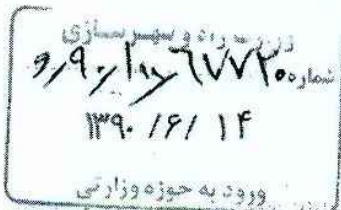 وزارت راه و شهرسازی
شماره ۶۷۷۳۰
۱۳۹۰/۶/۱۴
ورود به حوزه وزارتی